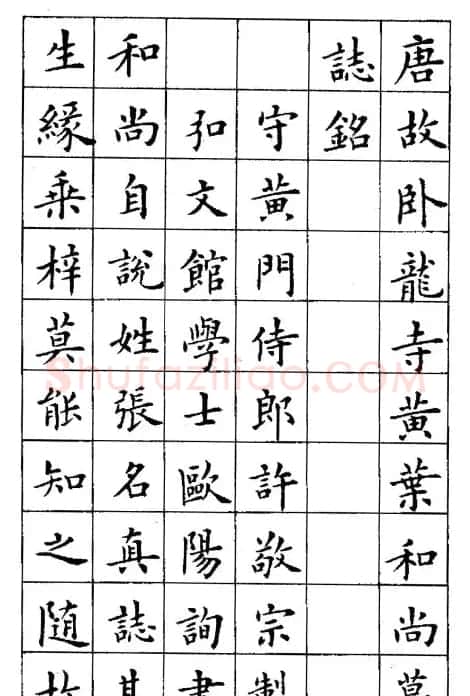 唐故卧龍寺黃葉和尚墓
誌銘
守黃門侍郎許敬宗製
弘文館學士歐陽詢書
和尚自說姓張名真誌其
生緣桑梓莫能知之隨故
Shufaziliao.COM